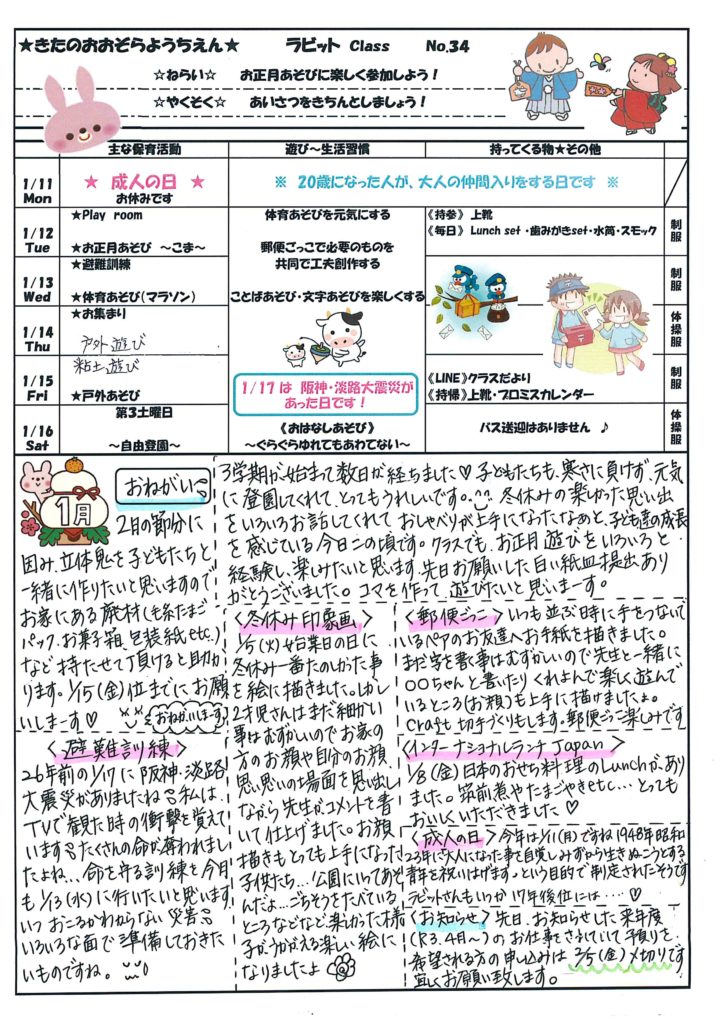 ★きたのおおぞらようちえん★　ラビット Class　No.34
☆ねらい☆　お正月あそびに楽しく参加しよう！
☆やくそく☆　あいさつをきちんとしましょう！
主な保育活動　遊び～生活習慣　持ってくる物★その他
1/11 Mon
★ 成人の日 ★
お休みです
※ 20歳になった人が、大人の仲間入りをする日です ※
1/12 Tue
★Play room
★お正月あそび ～こま～
体育あそびを元気にする
郵便ごっこで必要のものを
《持参》上靴
《毎日》Lunch set・歯みがきset・水筒・スモック
制服
1/13 Wed
★避難訓練
★体育あそび(マラソン)
共同で工夫創作する
ことばあそび・文字あそびを楽しくする
制服
1/14 Thu
★お集まり
戸外遊び
体操服
1/15 Fri
粘土遊び
★戸外あそび
1/17 は 阪神・淡路大震災が
あった日です！
《LINE》クラスだより
《持帰》上靴・プロミスカレンダー
制服
1/16 Sat
第3土曜日
～自由登園～
《おはなしあそび》
～ぐらぐらゆれてもあわてない～
バス送迎はありません ♪
体操服
1月
おねがい
2月の節分に
因み、立体鬼を子どもたちと
一緒に作りたいと思いますので
お家にある廃材(毛糸たまご
パック、お菓子箱、包装紙etc.)
など持たせて頂けると助か
ります。1/15(金)位までにお願
いしまーす♡
おねがいします
3学期が始まって数日が経ちました♡子どもたちも、寒さに負けず、元気
に登園してくれて、とってもうれしいです。冬休みの楽しかった思い出
をいろいろお話してくれて おしゃべりが上手になったなぁと、子ども達の成長
を感じている今日この頃です。クラスでも、お正月遊びをいろいろと
経験し、楽しみたいと思います。先日お願いした白い紙皿提出あり
がとうございました。コマを作って遊びたいと思いまーす。
〈冬休み印象画〉
1/5(火)始業日の日に
冬休み一番たのしかった事
を絵に描きました。しかし
2才児さんはまだ細かい
事はむずかしいのでお家の
方のお顔や自分のお顔、
思い思いの場面を思い出し
ながら先生がコメントを書
いて仕上げました。お顔
描きもとっても上手になった
子供たち…公園にいってあそ
んだよ…ごちそうをたべている
ところなどなど楽しかった様
子がうかがえる楽しい絵に
なりましたよ
〈郵便ごっこ〉いつも並ぶ時に手をつないで
いるペアのお友達へお手紙を描きました。
まだ字を書く事はむずかしいので先生と一緒に
○○ちゃんと書いたりくれよんで楽しく遊んで
いるところ(お顔)も上手に描けましたよ。
Craft 切手づくりもします。郵便ごっこ楽しみです
〈インターナショナルランチ Japan〉
1/8(金)日本のおせち料理のLunchがあり
ました。筑前煮やたまごやきetc…とっても
おいしくいただきました♡
〈成人の日〉今年は1/11(月)ですね1948年昭和
23年に「大人になった事を自覚しみずから生きぬこうとする
青年を祝いはげます。という目的で制定されたそうです
ラビットさんもいつか17年後位には・・・・♡
〈お知らせ〉先日、お知らせした来年度
(R3.4月～)のお仕事をされていて預りを
希望される方の申し込みは 2/5(金)〆切りです
宜しくお願い致します。
〈避難訓練〉
26年前の1/17に阪神・淡路
大震災がありましたね。私は、
TVで観た時の衝撃を覚えて
います。たくさんの命が奪われま
したよね、、命を守る訓練を今月
も1/13(水)に行いたいと思います
いつおこるかわからない災害。
いろいろな面で準備しておきた
いものですね。